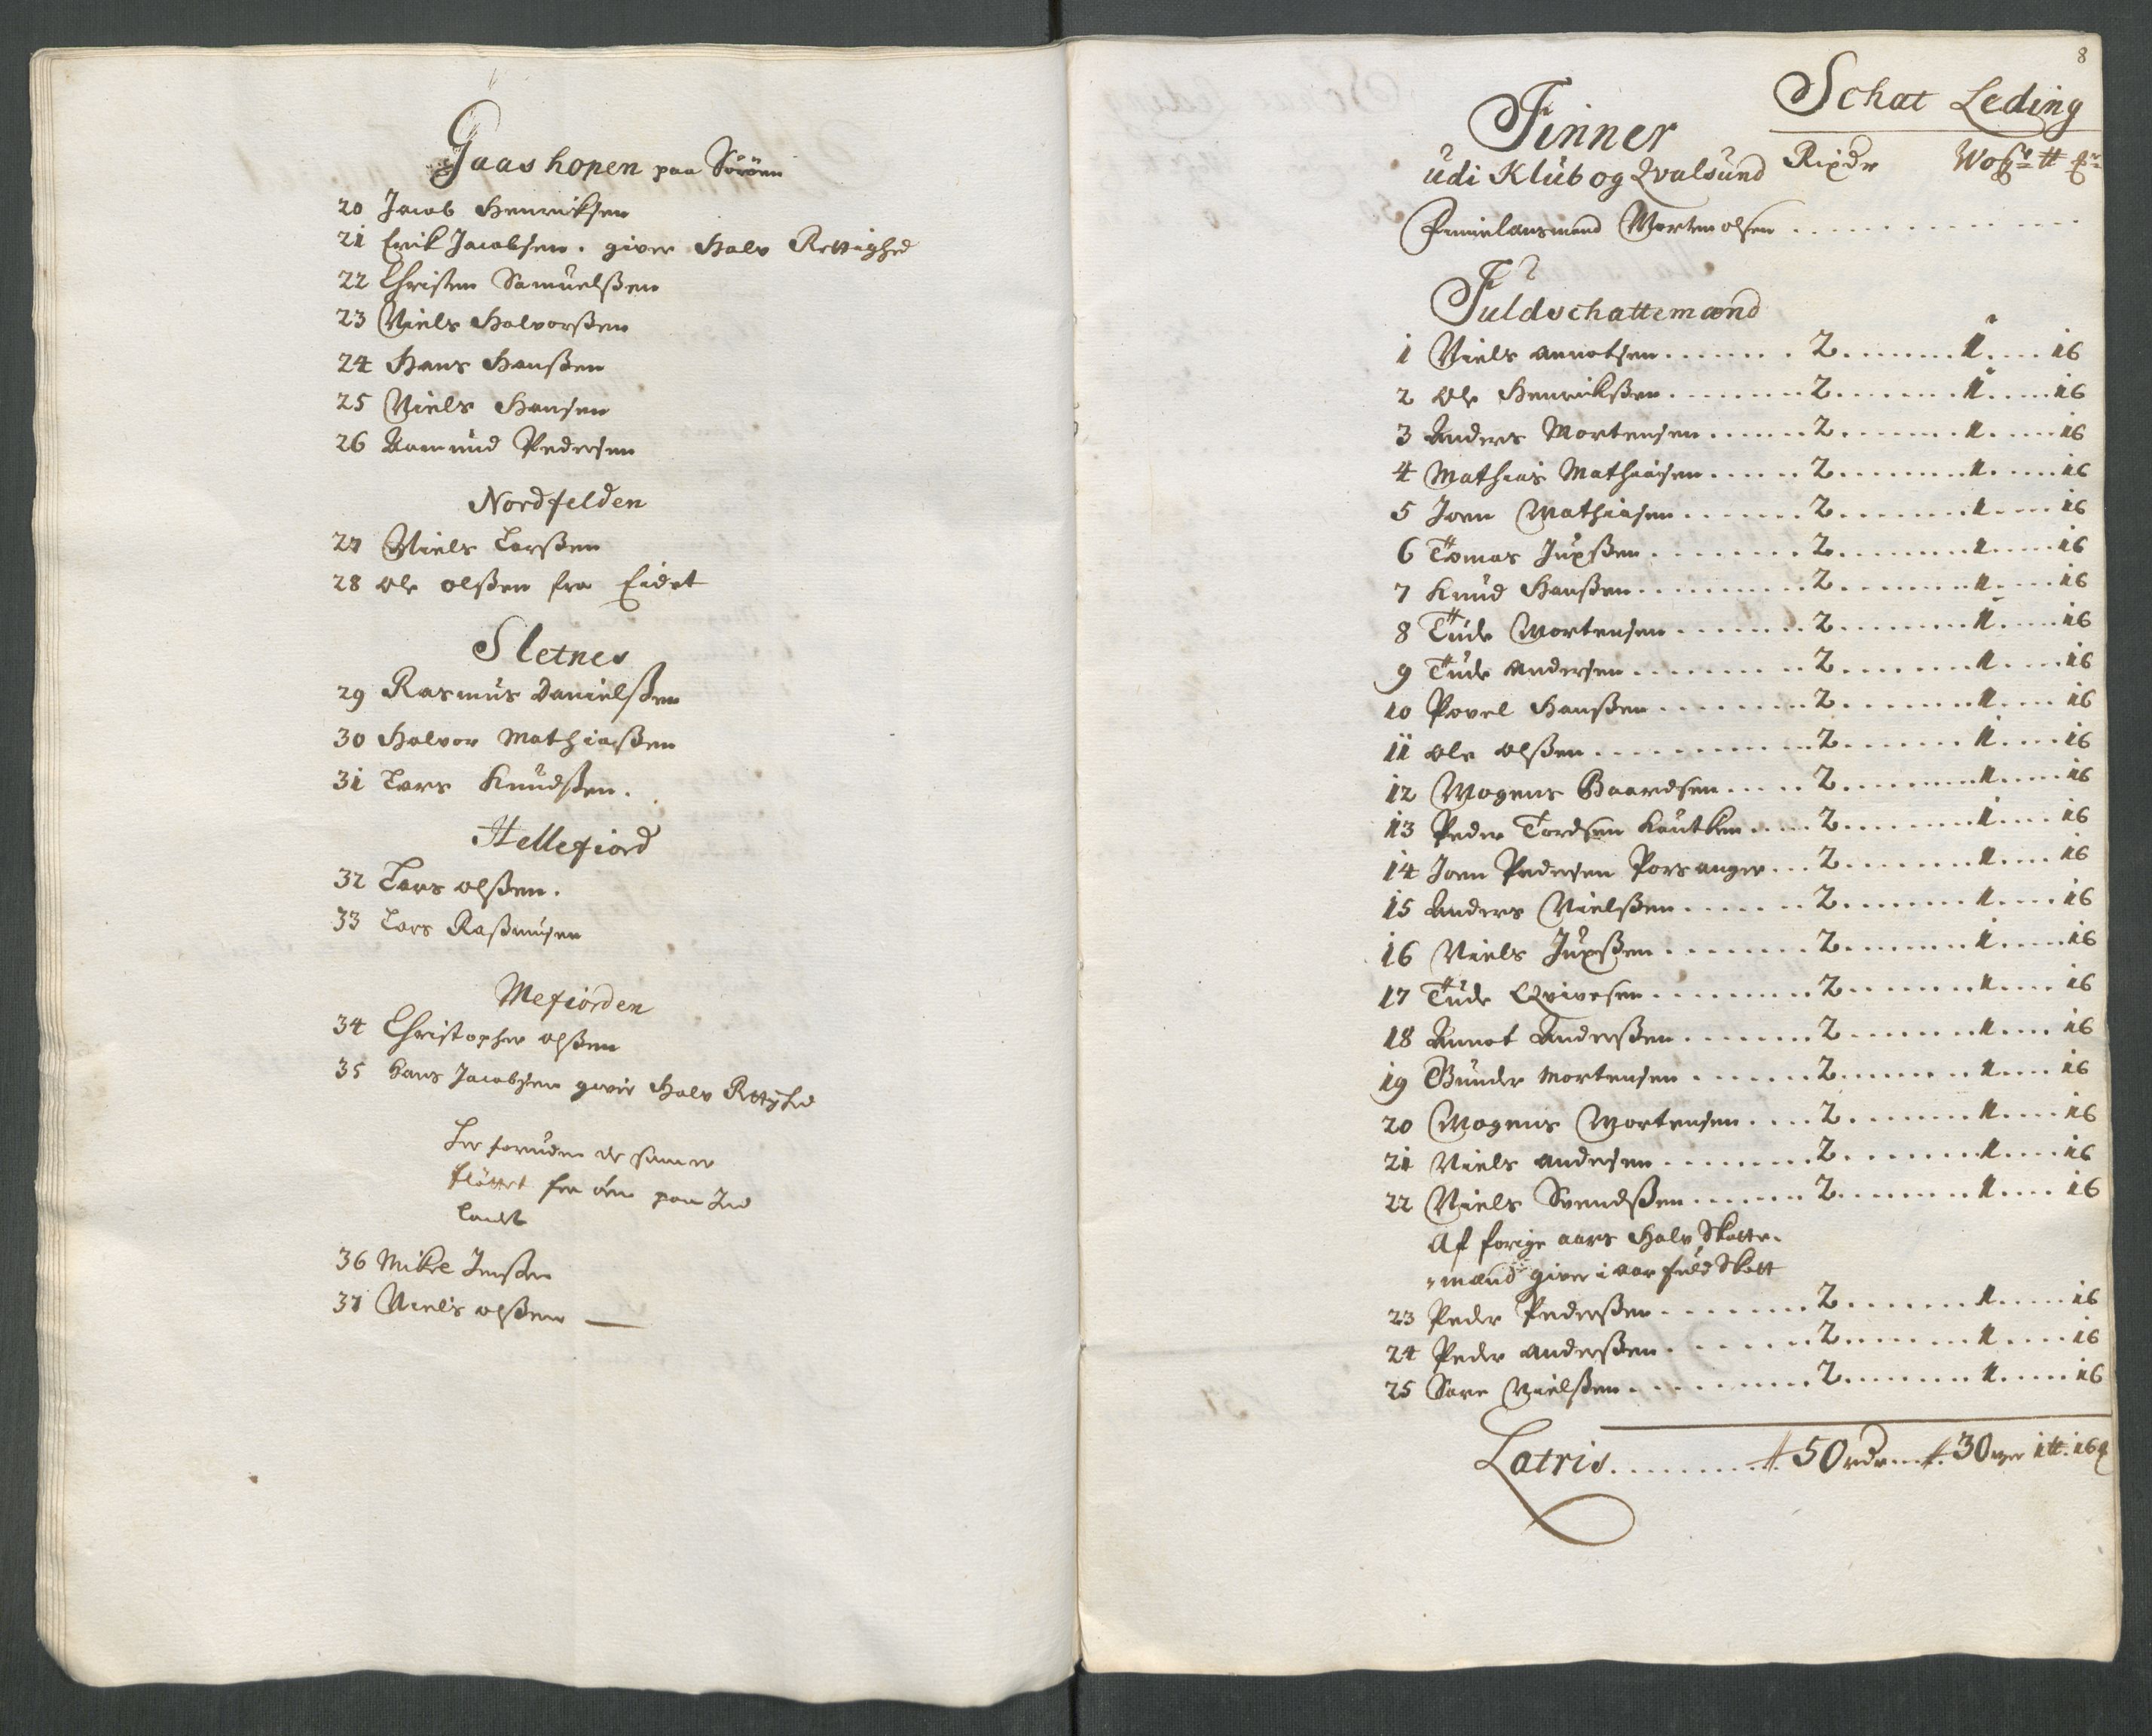 Gaashopen paa Söröen
20 Jacob Henricksen
21 Erik Jacobsen. giver Halv Rettighed
22 Christen Samuelssen
23 Niels Halvorssen
24 Hans Hanssen
25 Niels Hansen
26 Aamund Pedersen
Nordfelden
27 Niels Larssen
28 Ole olssen fra Eidet
Sletnes
29 Rasmus Danielssen
30 Halvor Mathiassen
31 Lars Knudssen.
Hellefiord
32 Lars olssen.
33 Lars Rassmusen
Mefiorden
34 Christopher olssen
35 Hans Jacobsen giver Halv Rettighed
foruden de som er
flöttet fra öen paa Ind
Landet
36 Mikel Jenssen
37 Niels olssen
8
Schat Leding
Finner
udi Klub og Qvalsund Rixdr Wogr tt
Finnelansmand Morten olsen
Fuldschattemænd
1 Niels Annotsen ....... 2 ....... 1 .... 16
2 Ole Henrikssen ....... 2 ....... 1 .... 16
3 Anders Mortensen ...... 2 ....... 1 .... 16
4 Mathias Mathiasen ...... 2 ....... 1 .... 16
5 Joen Mathiasen ....... 2 ....... 1 .... 16
6 Tomas Jupssen ....... 2 ....... 1 .... 16
7 Knud Hanssen ....... 2 ....... 1 .... 16
8 Tude Mortensen ....... 2 ....... 1 .... 16
9 Tude Andersen ....... 2 ....... 1 .... 16
10 Povel Hanssen ....... 2 ....... 1 .... 16
11 Ole olssen ....... 2 ....... 1 .... 16
12 Mogens Baardsen ..... 2 ....... 1 .... 16
13 Peder Tordsen .... 2 ....... 1 .... 16
14 Joen Pedersen Porsanger ... 2 ....... 1 .... 16
15 Anders Nielssen ....... 2 ....... 1 .... 16
16 Niels Jupssen ....... 2 ....... 1 .... 16
17 Tude Qvivesen ....... 2 ....... 1 .... 16
18 Annot Anderssen ....... 2 ....... 1 .... 16
19 Gunder Mortensen ....... 2 ....... 1 .... 16
20 Mogens Mortensen .... 2 ....... 1 .... 16
21 Niels Andersen ....... 2 ....... 1 .... 16
22 Niels Svendssen ....... 2 ....... 1 .... 16
Af forige aars Halv Skatte-
-mænd giver i aar fuld Skatt
23 Peder Pederssen ....... 2 ....... 1 .... 16
24 Peder Anderssen ....... 2 ....... 1 .... 16
25 Sare Nielssen ....... 2 ....... 1 .... 16
Latris ........ 50 rdr ... 30 wger 1 tt. 16